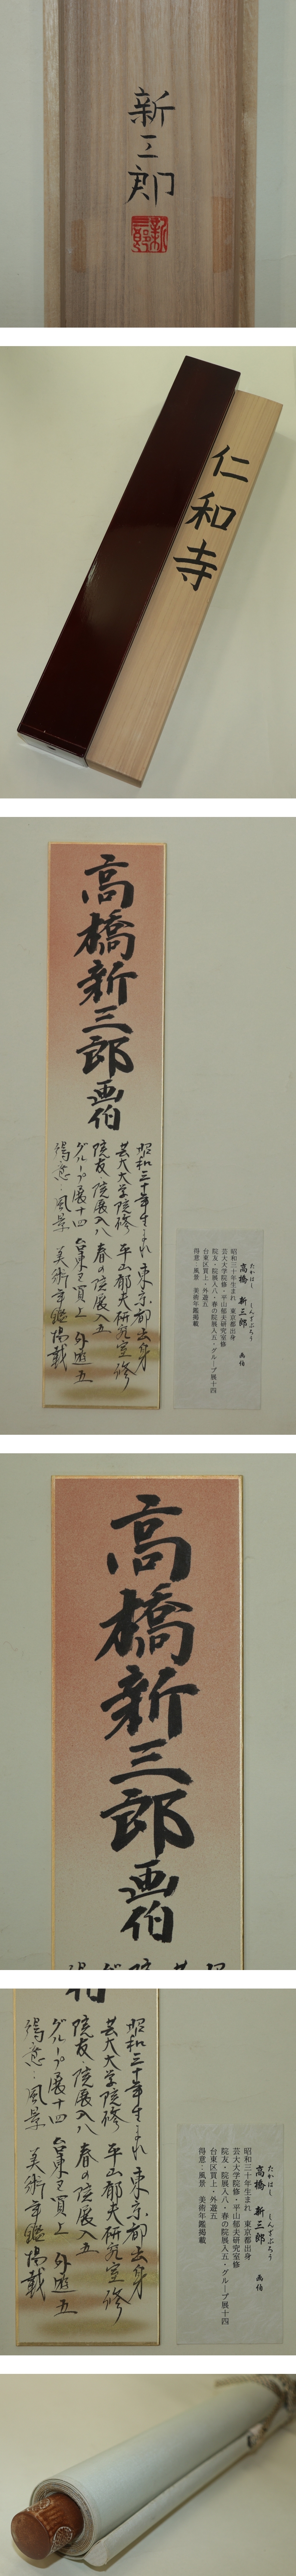 新三郎
新三郎
仁和寺
高橋新三郎画伯
昭和三十年生まれ 東京都出身
芸大大学院修 平山郁夫研究室修
院友・院展入八 春の院展入五
グループ展十四 台東区買上 外遊五
得意:風景 美術年鑑掲載
たかはし しんざぶろう
高橋 新三郎 画伯
昭和三十年生まれ 東京都出身
芸大大学院修・平山郁夫研究室修
院友・院展入八・春の院展入五・グループ展十四
台東区買上・外遊五
得意:風景 美術年鑑掲載
高橋新三郎画伯
伯
昭和三十年生まれ 東京都出身
芸大大学院修 平山郁夫研究室修
院友・院展入八 春の院展入五
グループ展十四 台東区買上 外遊五
得意:風景 美術年鑑掲載
たかはし しんざぶろう
高橋 新三郎 画伯
昭和三十年生まれ 東京都出身
芸大大学院修・平山郁夫研究室修
院友・院展入八・春の院展入五・グループ展十四
台東区買上・外遊五
得意:風景 美術年鑑掲載